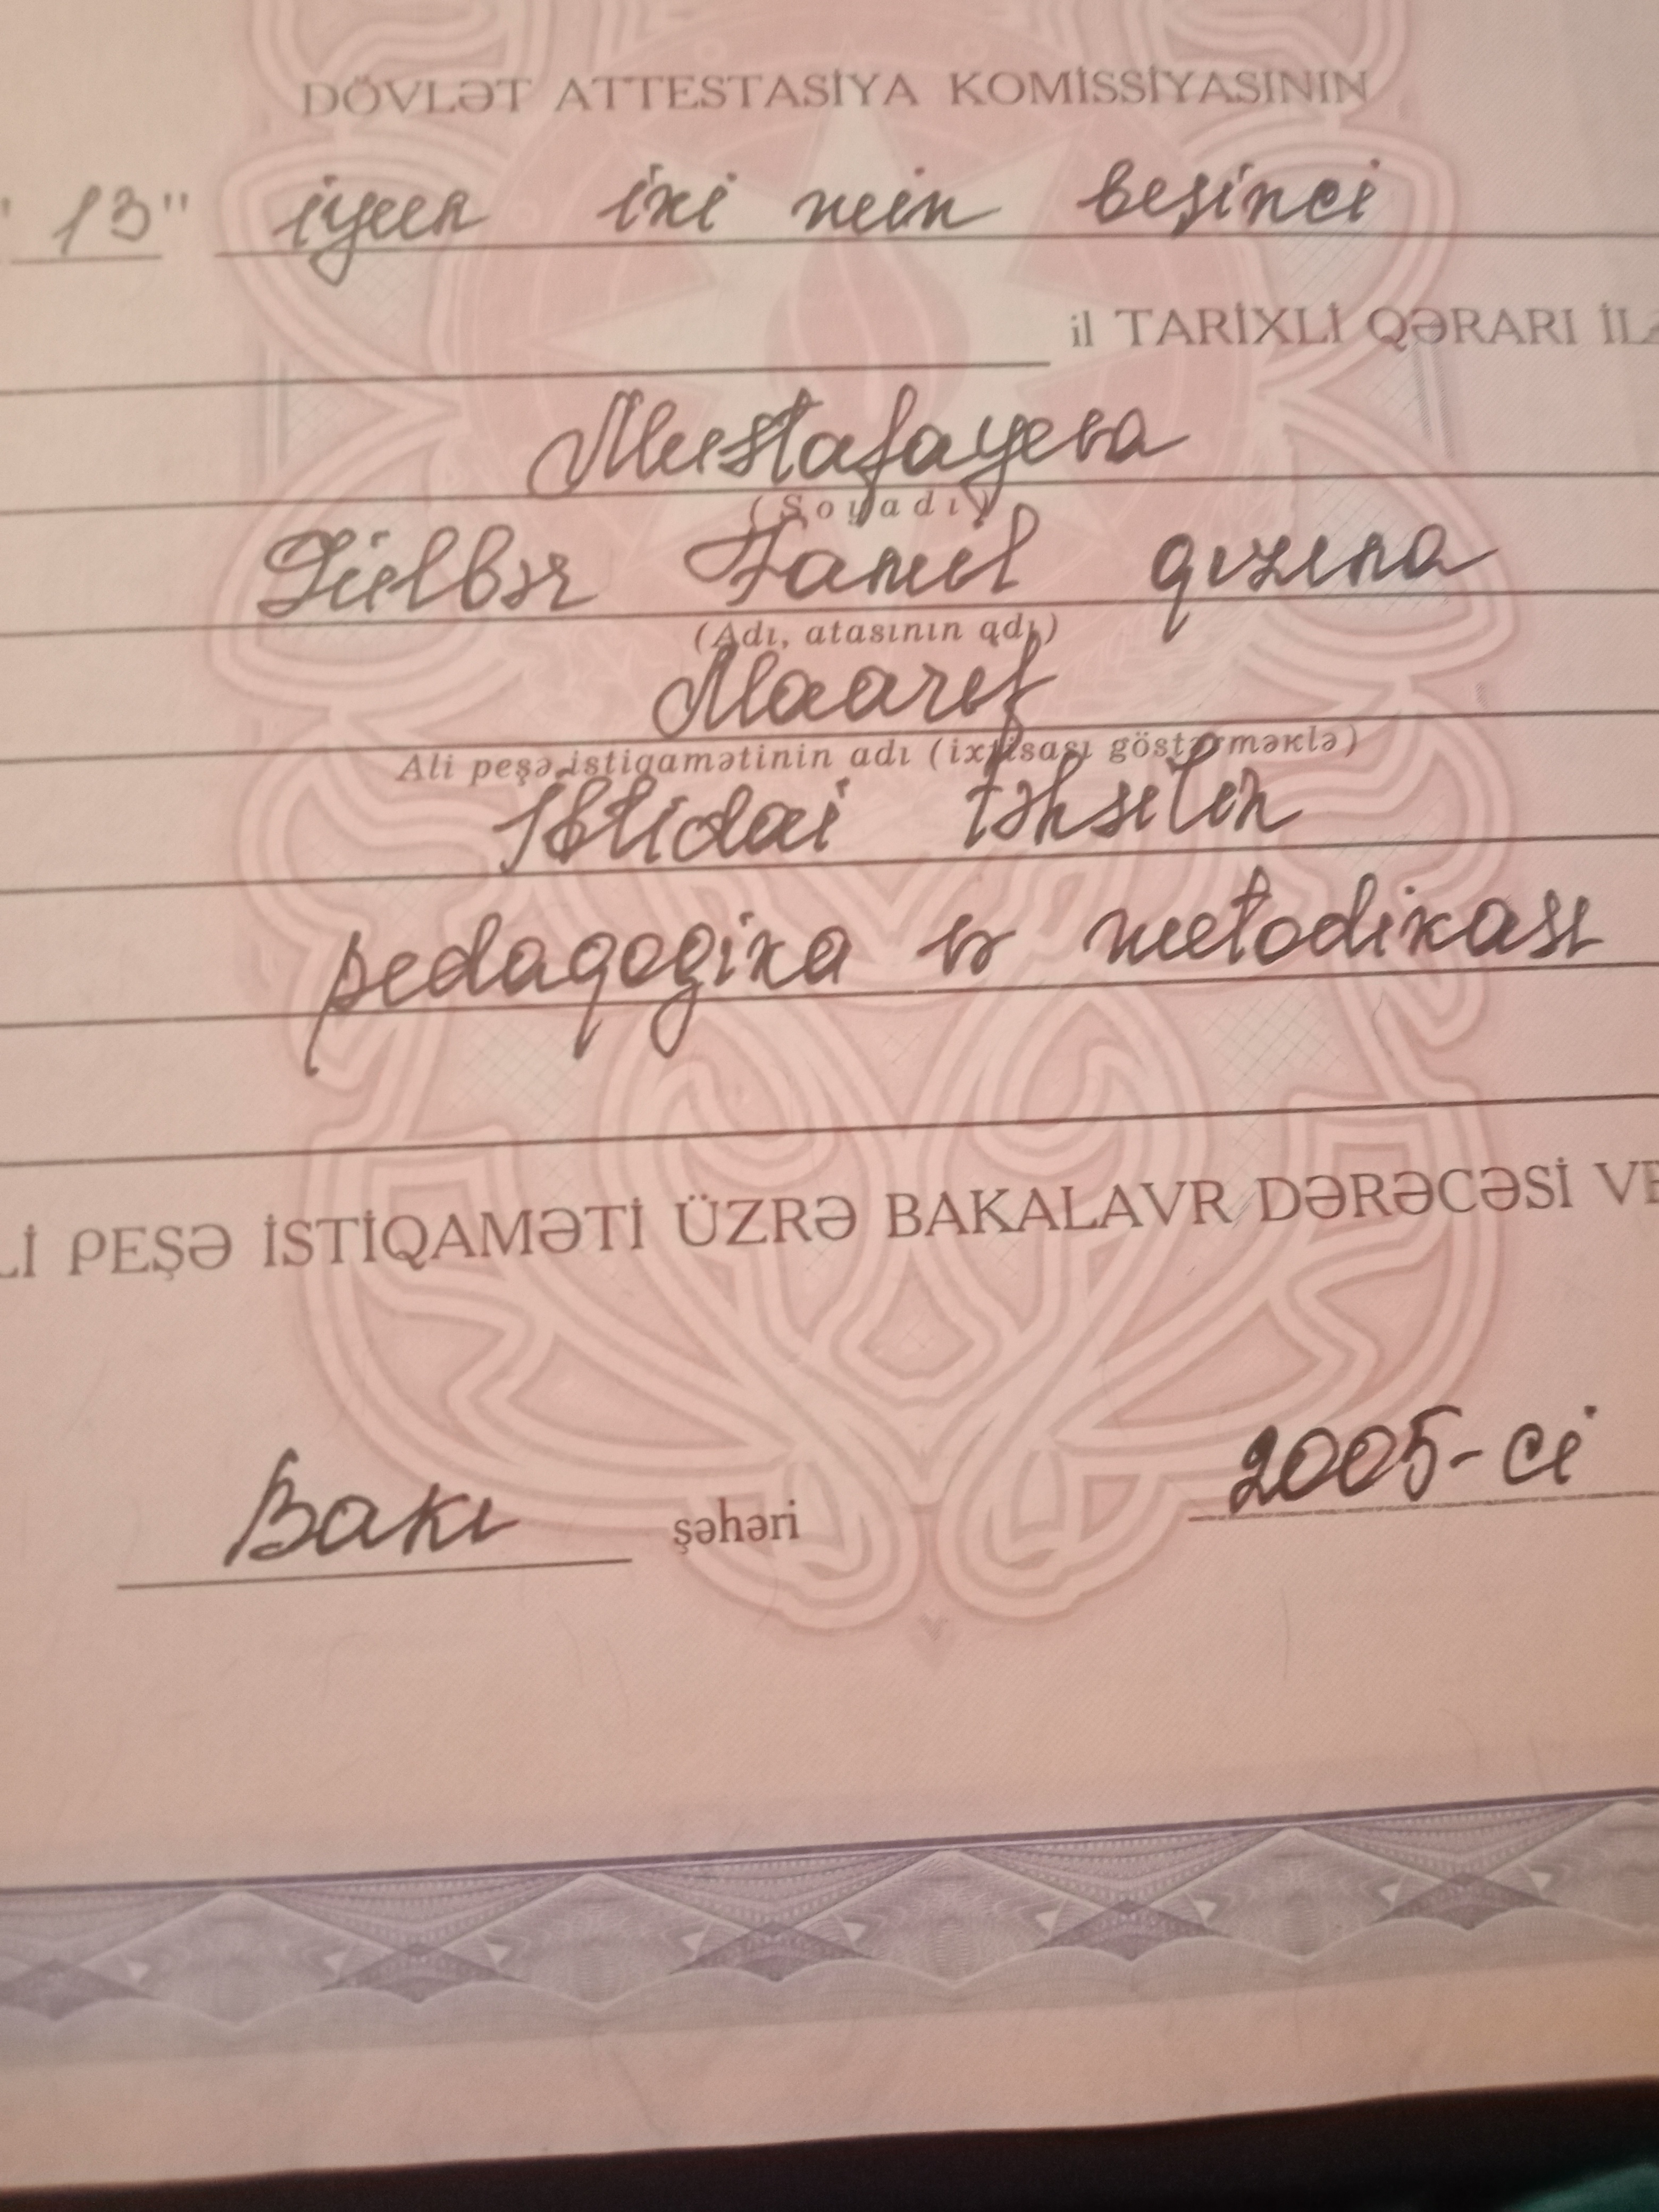 DÖVLƏT ATTESTASİYA KOMİSSİYASININ
" 13 " iyun iki min beşinci
il TARİXLİ QƏRARI İLƏ
Mustafayeva
(Soyadı)
Gülbər Famil qızına
(Adı, atasının adı)
Maarif
Ali peşə istiqamətinin adı (ixtisası göstərməklə)
İbtidai təhsilin
pedaqogika və metodikası
Lİ PEŞƏ İSTİQAMƏTİ ÜZRƏ BAKALAVR DƏRƏCƏSİ VE
Bakı şəhəri 2005-ci